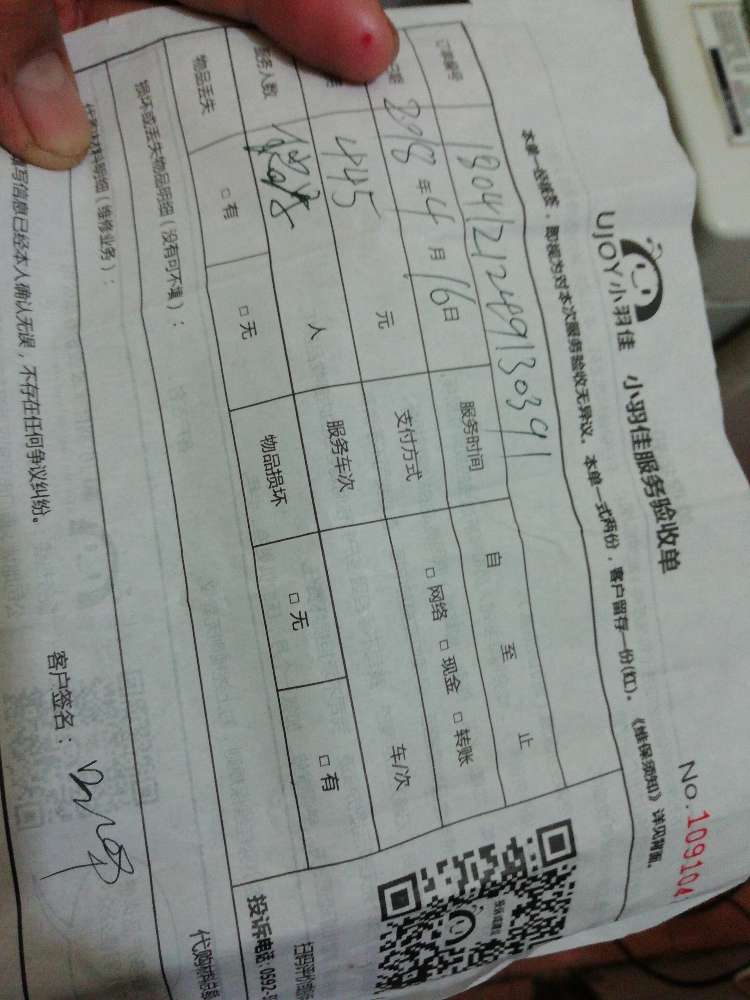 UJOY小羽佳 小羽佳服务验收单
No.109104
本单一经签签，即视为对本次服务验收无异议。本单一式两份，客户留存一份(红)。《维保须知》详见背面。
订单编号 1804121249130391
年4月16日 服务时间 自 至 止
445 元 支付方式 □网络 □现金 □转账
服务人数 人 服务车次 车/次
物品丢失 □有 □无 物品损坏 □无 □有
损坏或丢失物品明细（没有可不填）：
材料明细（维修业务）：
写信息已经本人确认无误，不存在任何争议纠纷。
客户签名：
投诉电话：0592-5